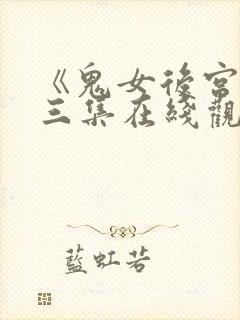 《鬼女後宮
三集在綫觀
藍虹若